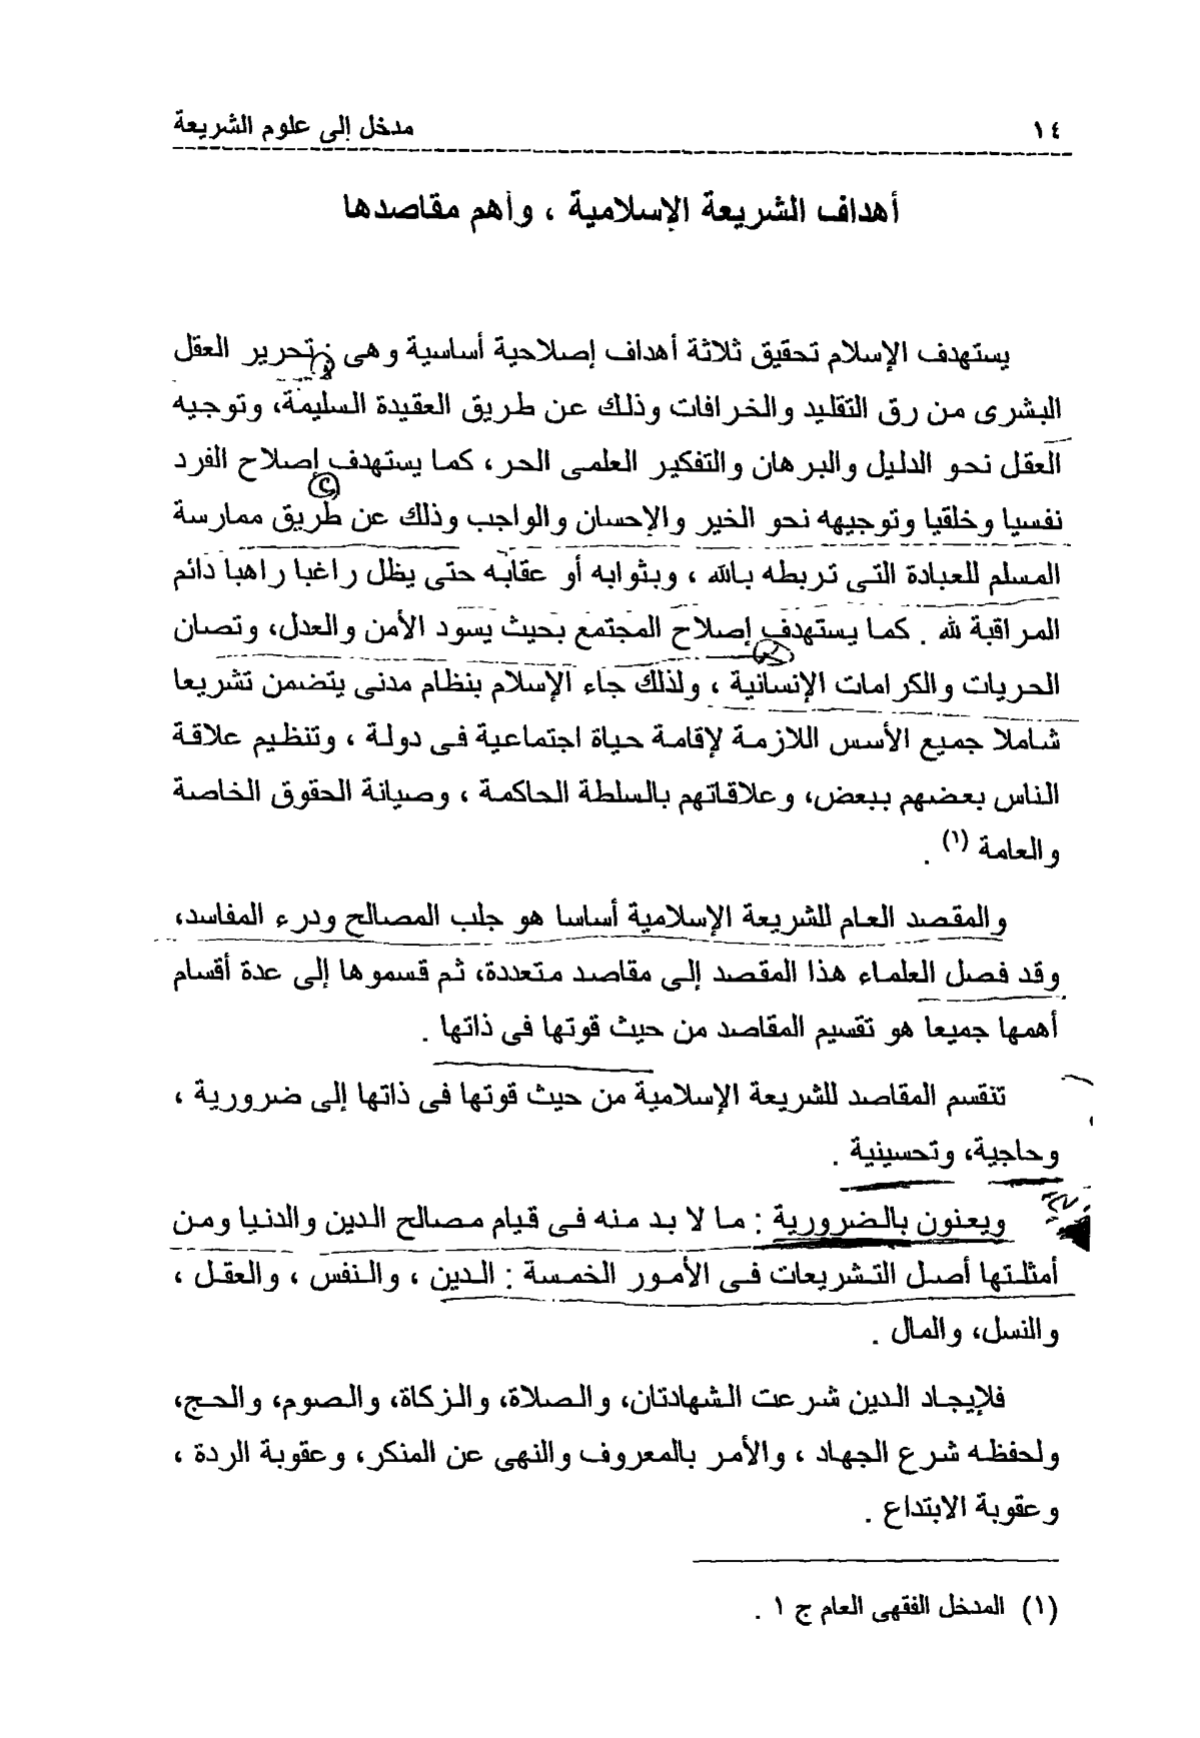 ١٤
مدخل إلى علوم الشريعة
أهداف الشريعة الإسلامية ، وأهم مقاصدها
يستهدف الإسلام تحقيق ثلاثة أهداف إصلاحية أساسية وهى : تحرير العقل
البشرى من رق التقليد والخرافات وذلك عن طريق العقيدة السليمة، وتوجيه
العقل نحو الدليل والبرهان والتفكير العلمى الحر، كما يستهدف إصلاح الفرد
نفسيا وخلقيا وتوجيهه نحو الخير والإحسان والواجب وذلك عن طريق ممارسة
المسلم للعبادة التى تربطه بالله ، وبثوابه أو عقابه حتى يظل راغبا راهبا دائم
المراقبة لله . كما يستهدف إصلاح المجتمع بحيث يسود الأمن والعدل، وتصان
الحريات والكرامات الإنسانية ، ولذلك جاء الإسلام بنظام مدنى يتضمن تشريعا
شاملا جميع الأسس اللازمة لإقامة حياة اجتماعية فى دولة ، وتنظيم علاقة
الناس بعضهم ببعض، وعلاقاتهم بالسلطة الحاكمة ، وصيانة الحقوق الخاصة
والعامة (١) .
والمقصد العام للشريعة الإسلامية أساسا هو جلب المصالح ودرء المفاسد،
وقد فصل العلماء هذا المقصد إلى مقاصد متعددة، ثم قسموها إلى عدة أقسام
أهمها جميعا هو تقسيم المقاصد من حيث قوتها فى ذاتها .
تنقسم المقاصد للشريعة الإسلامية من حيث قوتها فى ذاتها إلى ضرورية ،
وحاجية، وتحسينية .
ويعنون بالضرورية : ما لا بد منه فى قيام مصالح الدين والدنيا ومن
أمثلتها أصل التشريعات فى الأمور الخمسة : الدين ، والنفس ، والعقل ،
والنسل، والمال .
فلإيجاد الدين شرعت الشهادتان، والصلاة، والزكاة، والصوم، والحج،
ولحفظه شرع الجهاد ، والأمر بالمعروف والنهى عن المنكر، وعقوبة الردة ،
وعقوبة الابتداع .
(١) المدخل الفقهى العام ج ١ .